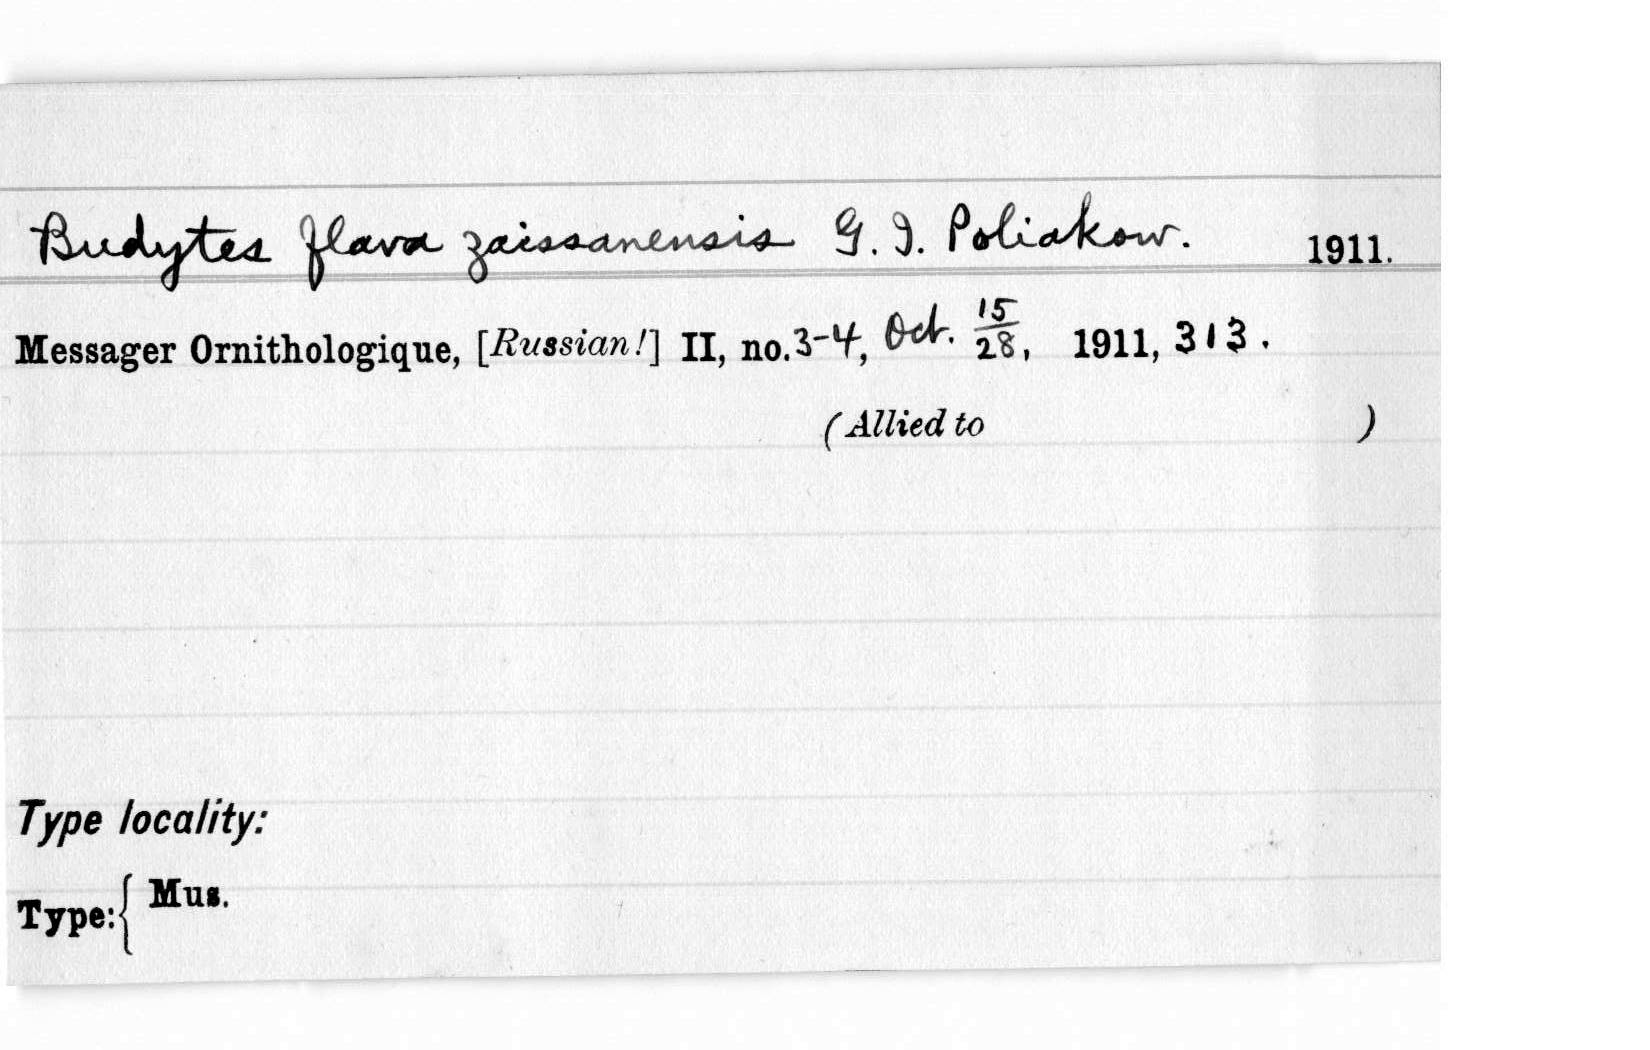 Budytes flava zaissanensis G. I. Poliakow. 1911.
Messager Ornithologique, [Russian!] II, no. 3-4, Oct. 15/28, 1911, 313.
(Allied to )
Type locality:
Type: { Mus.